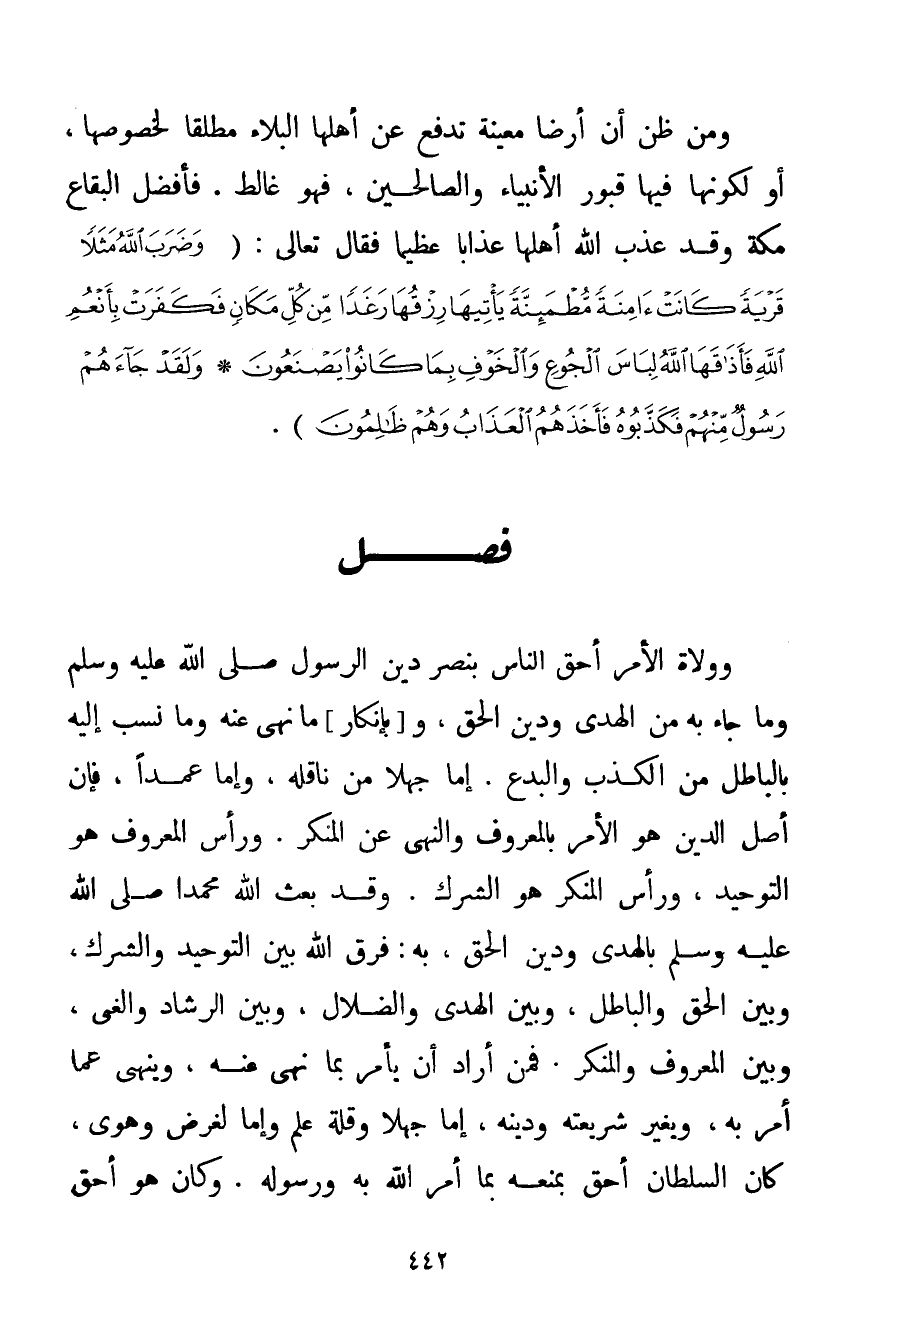 ومن ظن أن أرضا معينة تدفع عن أهلها البلاء مطلقا لخصوصها ،
أو لكونها فيها قبور الأنبياء والصالحين ، فهو غالط . فأفضل البقاع
مكة وقد عذب الله أهلها عذابا عظيما فقال تعالى : ( وَضَرَبَ ٱللَّهُ مَثَلًا
قَرْيَةً كَانَتْ ءَامِنَةً مُّطْمَئِنَّةً يَأْتِيهَا رِزْقُهَا رَغَدًا مِّن كُلِّ مَكَانٍ فَكَفَرَتْ بِأَنْعُمِ
ٱللَّهِ فَأَذَٰقَهَا ٱللَّهُ لِبَاسَ ٱلْجُوعِ وَٱلْخَوْفِ بِمَا كَانُوا۟ يَصْنَعُونَ * وَلَقَدْ جَآءَهُمْ
رَسُولٌ مِّنْهُمْ فَكَذَّبُوهُ فَأَخَذَهُمُ ٱلْعَذَابُ وَهُمْ ظَٰلِمُونَ ) .
فصل
وولاة الأمر أحق الناس بنصر دين الرسول صلى الله عليه وسلم
وما جاء به من الهدى ودين الحق ، و [ بإنكار ] ما نهى عنه وما نسب إليه
بالباطل من الكذب والبدع . إما جهلا من ناقله ، وإما عمداً ، فإن
أصل الدين هو الأمر بالمعروف والنهى عن المنكر . ورأس المعروف هو
التوحيد ، ورأس المنكر هو الشرك . وقد بعث الله محمدا صلى الله
عليه وسلم بالهدى ودين الحق ، به : فرق الله بين التوحيد والشرك ،
وبين الحق والباطل ، وبين الهدى والضلال ، وبين الرشاد والغى ،
وبين المعروف والمنكر . فمن أراد أن يأمر بما نهى عنه ، وينهى عما
أمر به ، ويغير شريعته ودينه ، إما جهلا وقلة علم وإما لغرض وهوى ،
كان السلطان أحق بمنعه بما أمر الله به ورسوله . وكان هو أحق
٤٤٢